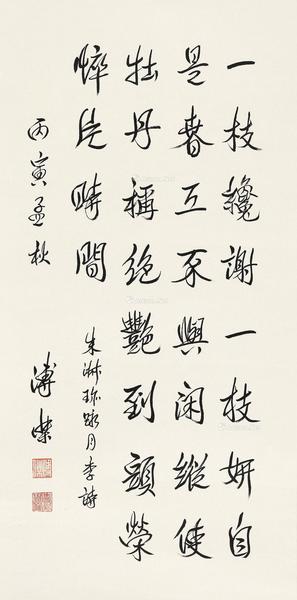 一枝纔謝一枝妍自
是春工不與闲縱使
牡丹稱絶艷到頭榮
悴片時間
朱淑珍咏月季詩
丙寅孟秋
溥傑